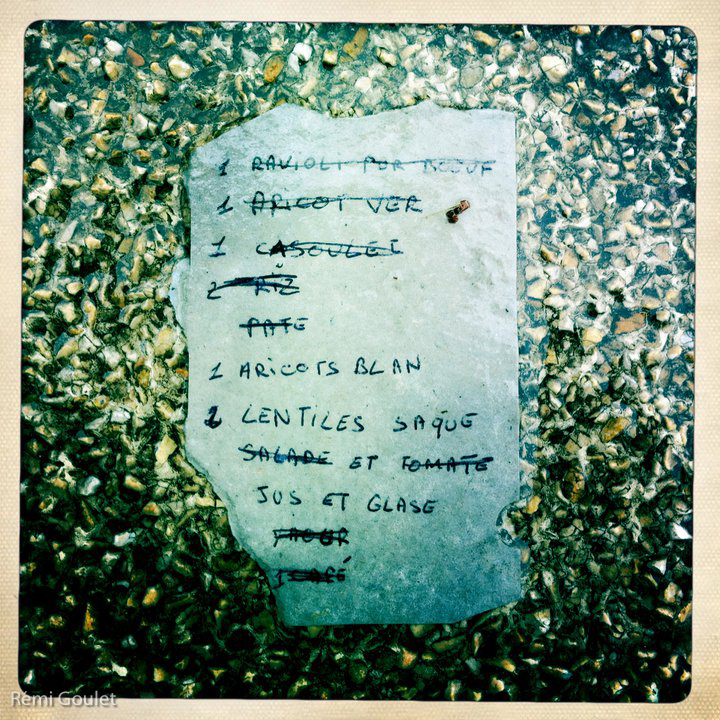 1 RAVIOLI PUR BOEUF
1 ARICOT VER
1 CASOULET
2 RIZ
PATE
1 ARICOTS BLAN
2 LENTILES SAQUE
SALADE ET TOMATE
JUS ET GLASE
YAOUR
1 CAFÉ
Rémi Goulet